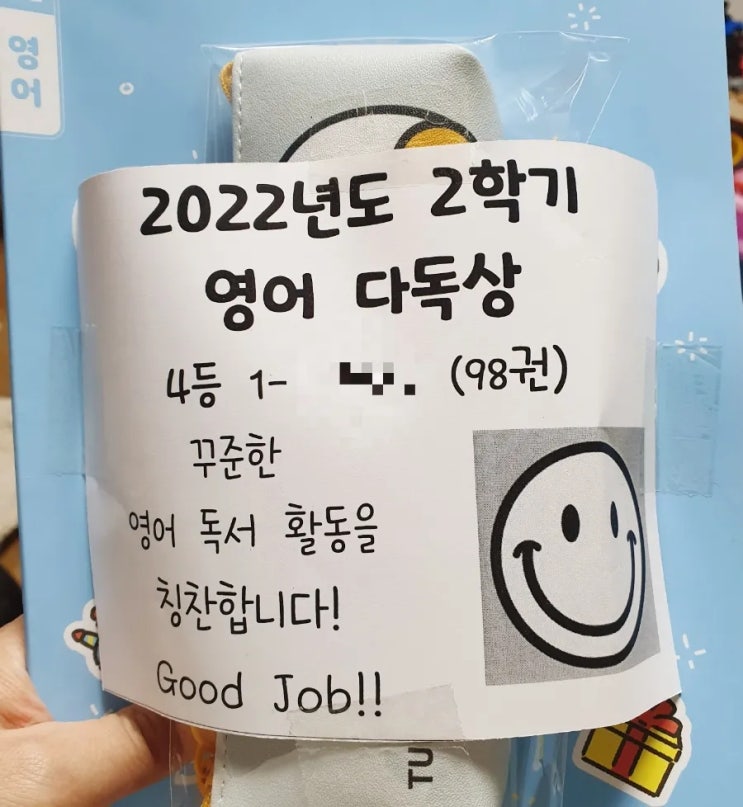 영어
2022년도 2학기
영어 다독상
4등 1- (98권)
꾸준한
영어 독서 활동을
칭찬합니다!
Good Job!!
TU